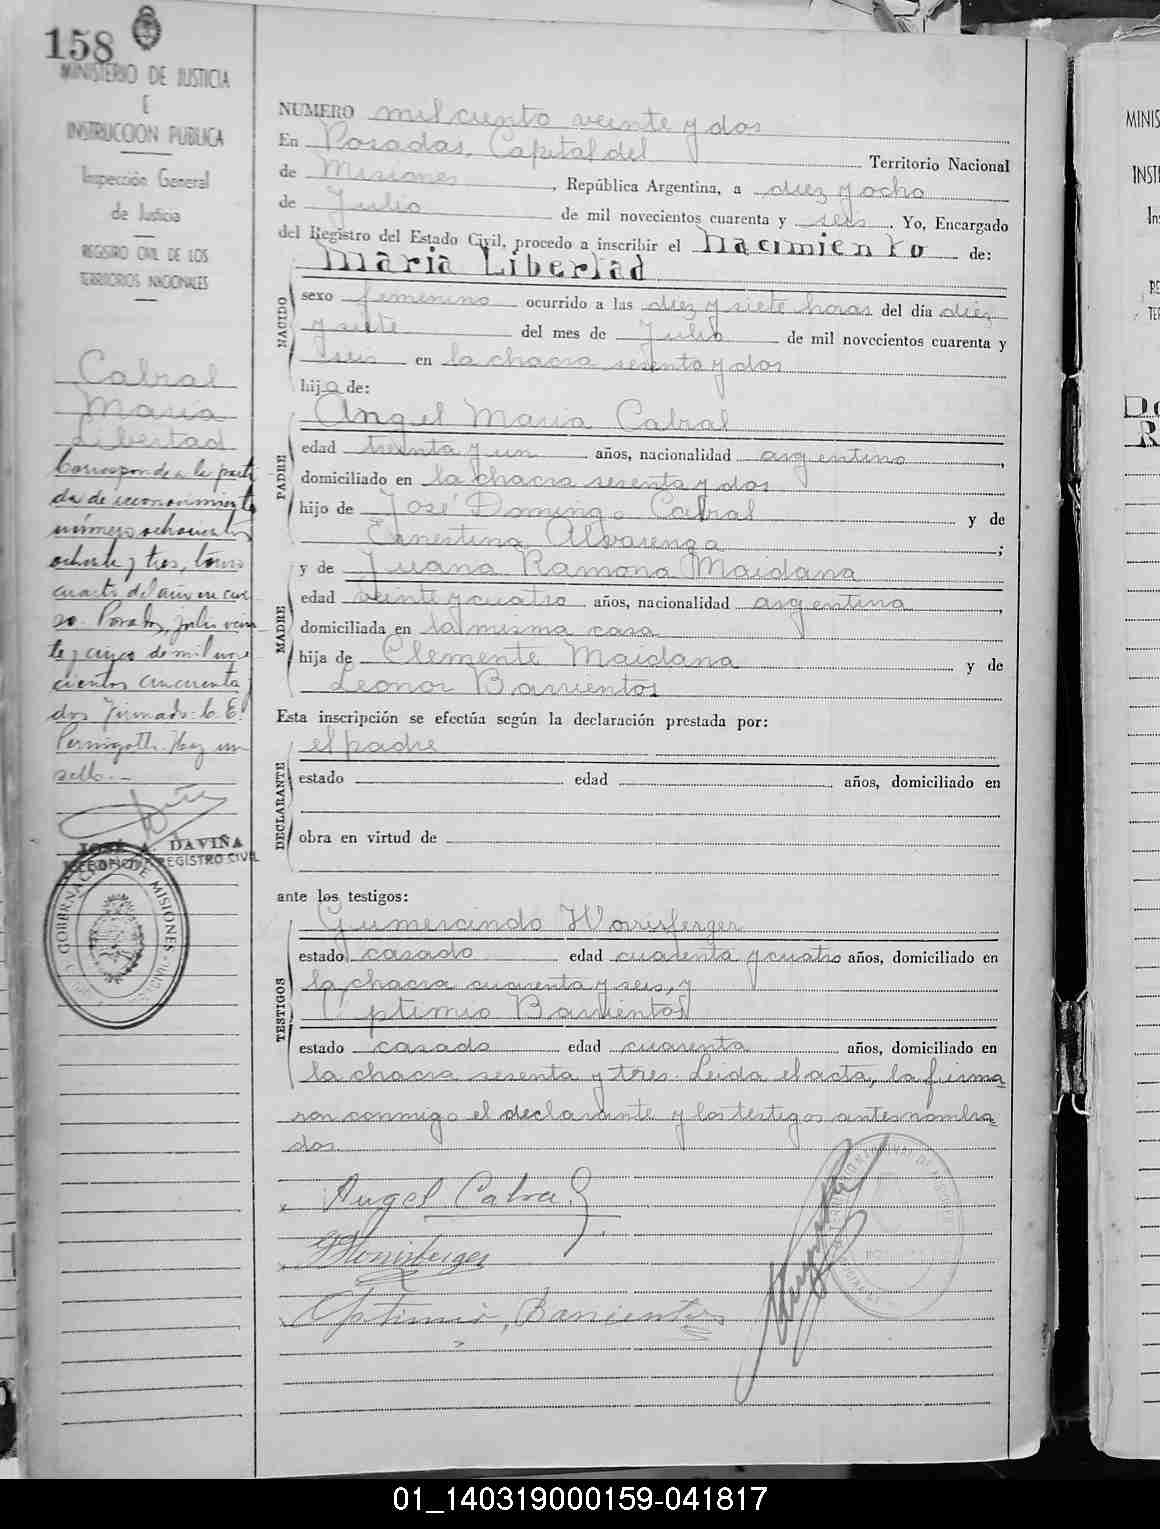 158
MINISTERIO DE JUSTICIA
E
INSTRUCCION PUBLICA
Inspección General
de Justicia
REGISTRO CIVIL DE LOS
TERRITORIOS NACIONALES
Cabral
Maria
Libertad
Corresponde a la parti
da de reconocimiento
número ochocientos
ochenta y tres, tomo
cuarto del año en cur
so. Posadas, julio vein
te y cinco de mil nove
cientos cincuenta y
dos Firmado: C. E.
Pernigotti. Hay un
sello.-
JOSÉ A. DAVIÑA
REGISTRO CIVIL
GOBERNACION DE MISIONES
NUMERO mil ciento veinte y dos
En Posadas, Capital del Territorio Nacional
de Misiones, República Argentina, a diez y ocho
de Julio de mil novecientos cuarenta y seis. Yo, Encargado
del Registro del Estado Civil, procedo a inscribir el Nacimiento de:
Maria Libertad
NACIDO
sexo femenino ocurrido a las diez y siete horas del día diez
y siete del mes de Julio de mil novecientos cuarenta y
seis en la chacra sesenta y dos
hija de:
PADRE
Angel Maria Cabral
edad treinta y un años, nacionalidad argentino,
domiciliado en la chacra sesenta y dos
hijo de José Domingo Cabral y de
Ernestina Alvarenga;
MADRE
y de Juana Ramona Maidana
edad veinte y cuatro años, nacionalidad argentina,
domiciliada en la misma casa
hija de Clemente Maidana y de
Leonor Barrientos
Esta inscripción se efectúa según la declaración prestada por:
DECLARANTE
el padre
estado edad años, domiciliado en
obra en virtud de
ante los testigos:
TESTIGOS
Gumercindo
estado casado edad cuarenta y cuatro años, domiciliado en
la chacra cuarenta y seis, y
Optimio Barrientos
estado casado edad cuarenta años, domiciliado en
la chacra sesenta y tres. Leida el acta, la firma
ron conmigo el declarante y los testigos antes nombra
dos.
Angel Cabral
Optimio Barrientos
01_140319000159-041817